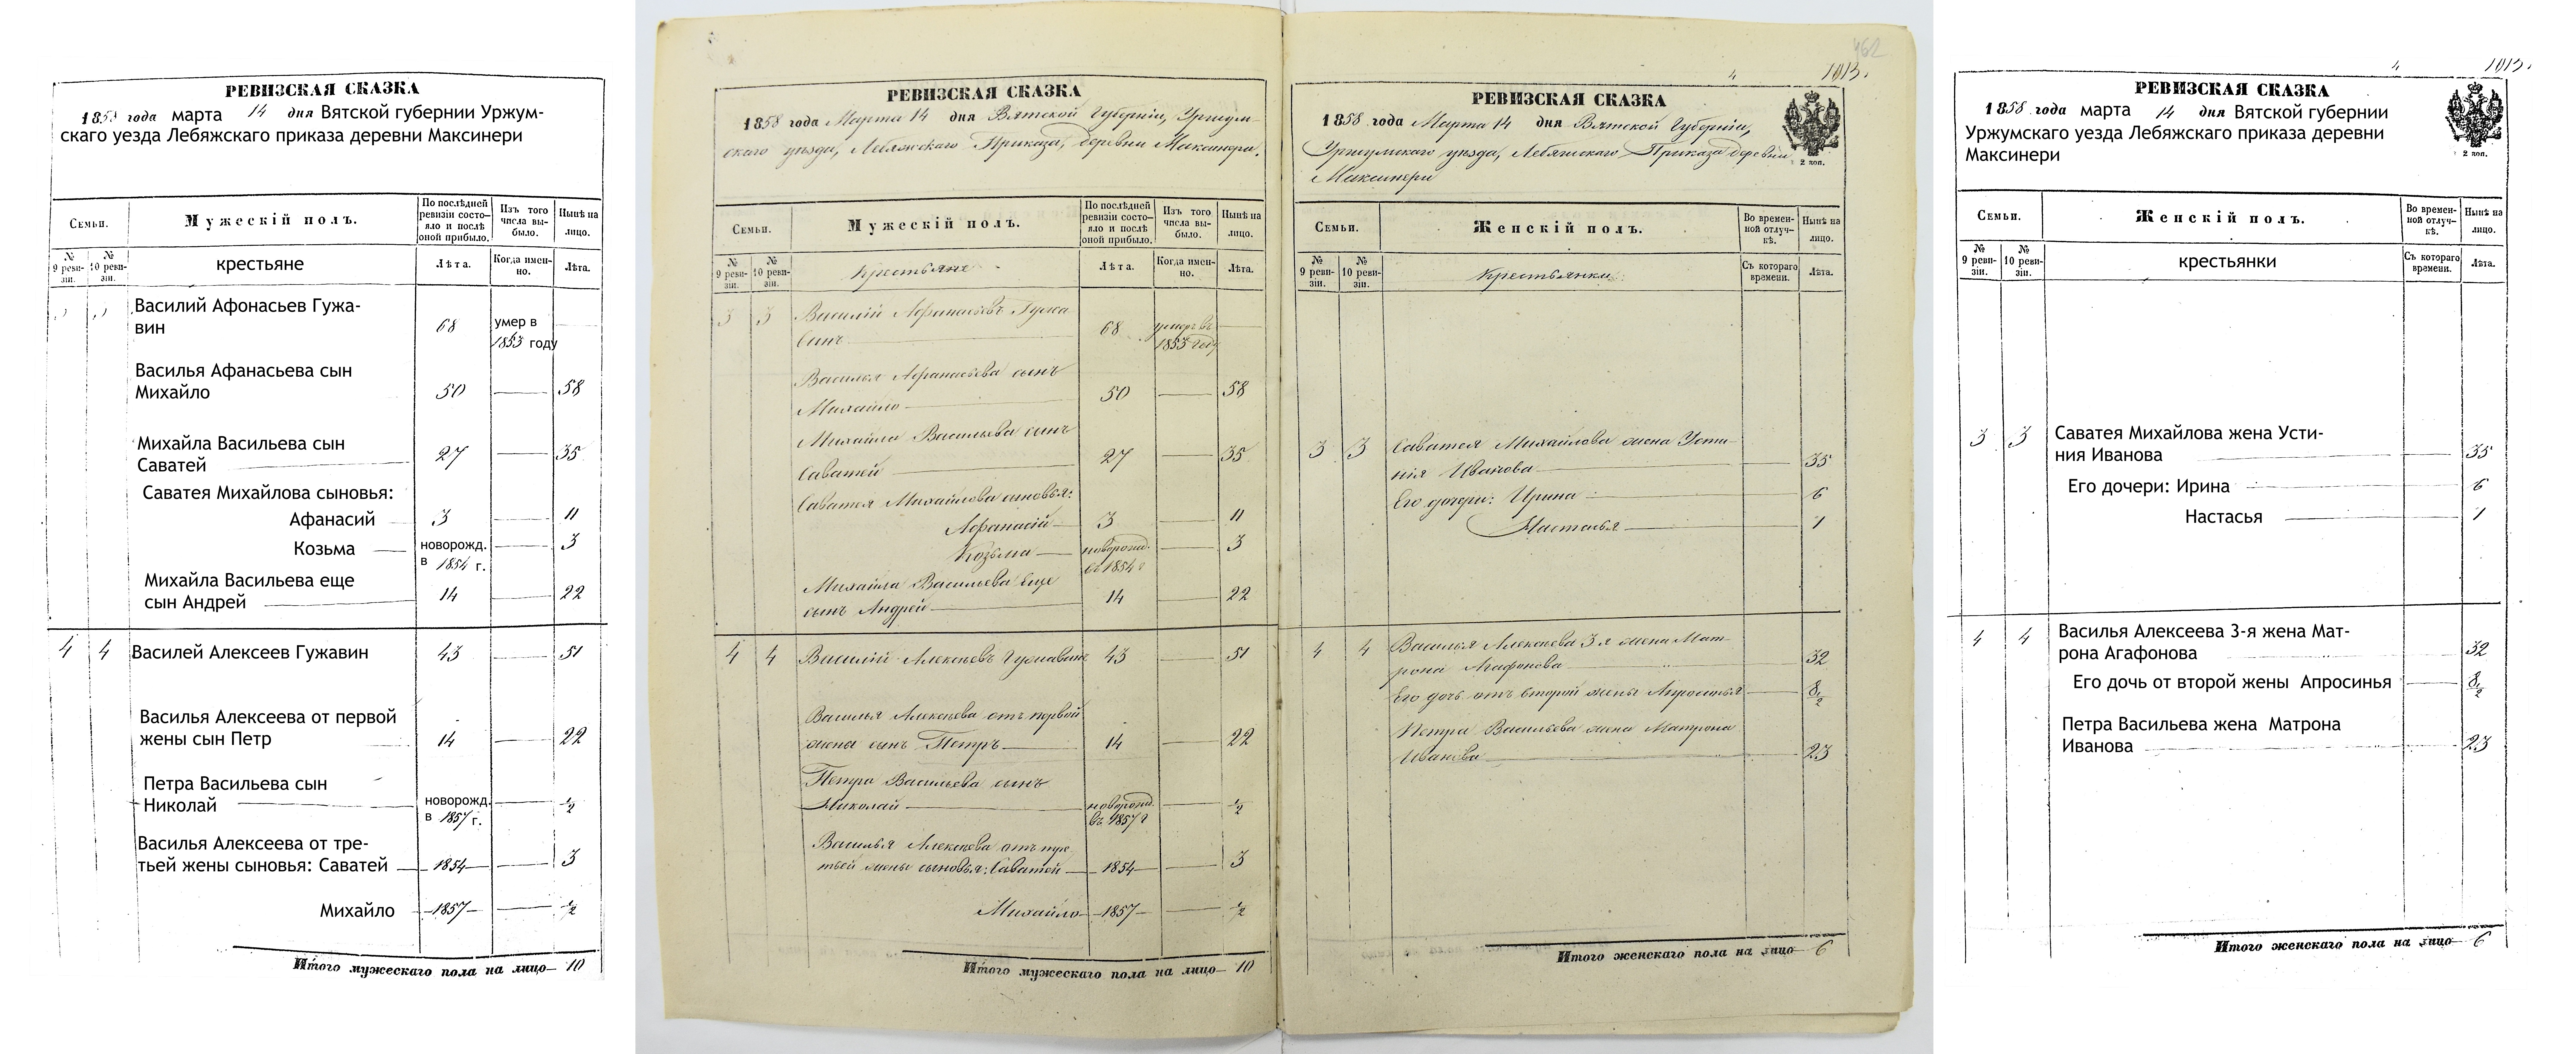 РЕВИЗСКАЯ СКАЗКА
185 года марта 14 дня Вятской губернии Уржум-
скаго уезда Лебяжского приказа деревни Максинери
Семьи.
Мужескій полъ.
По послѣдней ревизіи состо-яло и послѣ оной прибыло.
Изъ того числа вы-было.
Нынѣ на лицо.
№ 9 реви-зіи.
№ 10 реви-зіи.
крестьяне
Лѣта.
Когда имен-но.
Лѣта.
Василий Афонасьев Гужа-
вин 68 умер в
1853 году
Василья Афанасьева сын
Михайло 50 58
Михайла Васильева сын
Саватей 27 35
Саватея Михайлова сыновья:
Афанасий 3 11
Козьма новорожд. 3
в 1854 г.
Михайла Васильева еще
сын Андрей 14 22
4 4 Василей Алексеев Гужавин 43 51
Василья Алексеева от первой
жены сын Петр 14 22
Петра Васильева сын
Николай новорожд. 1/2
в 1857 г.
Василья Алексеева от тре-
тьей жены сыновья: Саватей 1854 3
Михайло 1857 1/2
Итого мужескаго пола на лицо 10
РЕВИЗСКАЯ СКАЗКА
1858 года Марта 14 дня Вятской Губерніи, Уржум-
скаго уѣзда, Лебяжскаго Приказа, деревни Максинери.
Семьи.
Мужескій полъ.
По послѣдней ревизіи состо-яло и послѣ оной прибыло.
Изъ того числа вы-было.
Нынѣ на лицо.
№ 9 реви-зіи.
№ 10 реви-зіи.
Крестьяне
Лѣта.
Когда имен-но.
Лѣта.
3 3 Василій Афанасьевъ Гужа
винъ 68 умеръ въ
1853 году
Василья Афанасьева сынъ
Михайло 50 58
Михайла Васильева сынъ
Саватей 27 35
Саватея Михайлова сыновья:
Афанасій 3 11
Козьма новорожд. 3
въ 1854 г
Михайла Васильева еще
сынъ Андрей 14 22
4 4 Василій Алексѣевъ Гужавинъ 43 51
Василья Алексѣева отъ первой
жены сынъ Петръ 14 22
Петра Васильева сынъ
Николай новорожд. 1/2
въ 1857 г
Василья Алексѣева отъ тре
тьей жены сыновья: Саватей 1854 3
Михайло 1857 1/2
Итого мужескаго пола на лицо 10
462
1013.
РЕВИЗСКАЯ СКАЗКА
1858 года Марта 14 дня Вятской Губерніи,
Уржумскаго уѣзда, Лебяжскаго Приказа деревни
Максинери
2 коп.
Семьи.
Женскій полъ.
Во времен-ной отлуч-кѣ.
Нынѣ на лицо.
№ 9 реви-зіи.
№ 10 реви-зіи.
Крестьянки
Съ котораго времени.
Лѣта.
3 3 Саватея Михайлова жена Усти-
нія Иванова 35
Его дочери: Ирина 6
Настасья 1
4 4 Василья Алексѣева 3 я жена Мат-
рона Агафонова 32
Его дочь отъ второй жены Апросинья 8 1/2
Петра Васильева жена Матрона
Иванова 23
Итого женскаго пола на лицо 6
1013.
РЕВИЗСКАЯ СКАЗКА
1858 года марта 14 дня Вятской губернии
Уржумскаго уезда Лебяжского приказа деревни
Максинери
2 коп.
Семьи.
Женскій полъ.
Во времен-ной отлуч-кѣ.
Нынѣ на лицо.
№ 9 реви-зіи.
№ 10 реви-зіи.
крестьянки
Съ котораго времени.
Лѣта.
3 3 Саватея Михайлова жена Усти-
ния Иванова 35
Его дочери: Ирина 6
Настасья 1
4 4 Василья Алексеева 3-я жена Мат-
рона Агафонова 32
Его дочь от второй жены Апросинья 8 1/2
Петра Васильева жена Матрона
Иванова 23
Итого женскаго пола на лицо 6